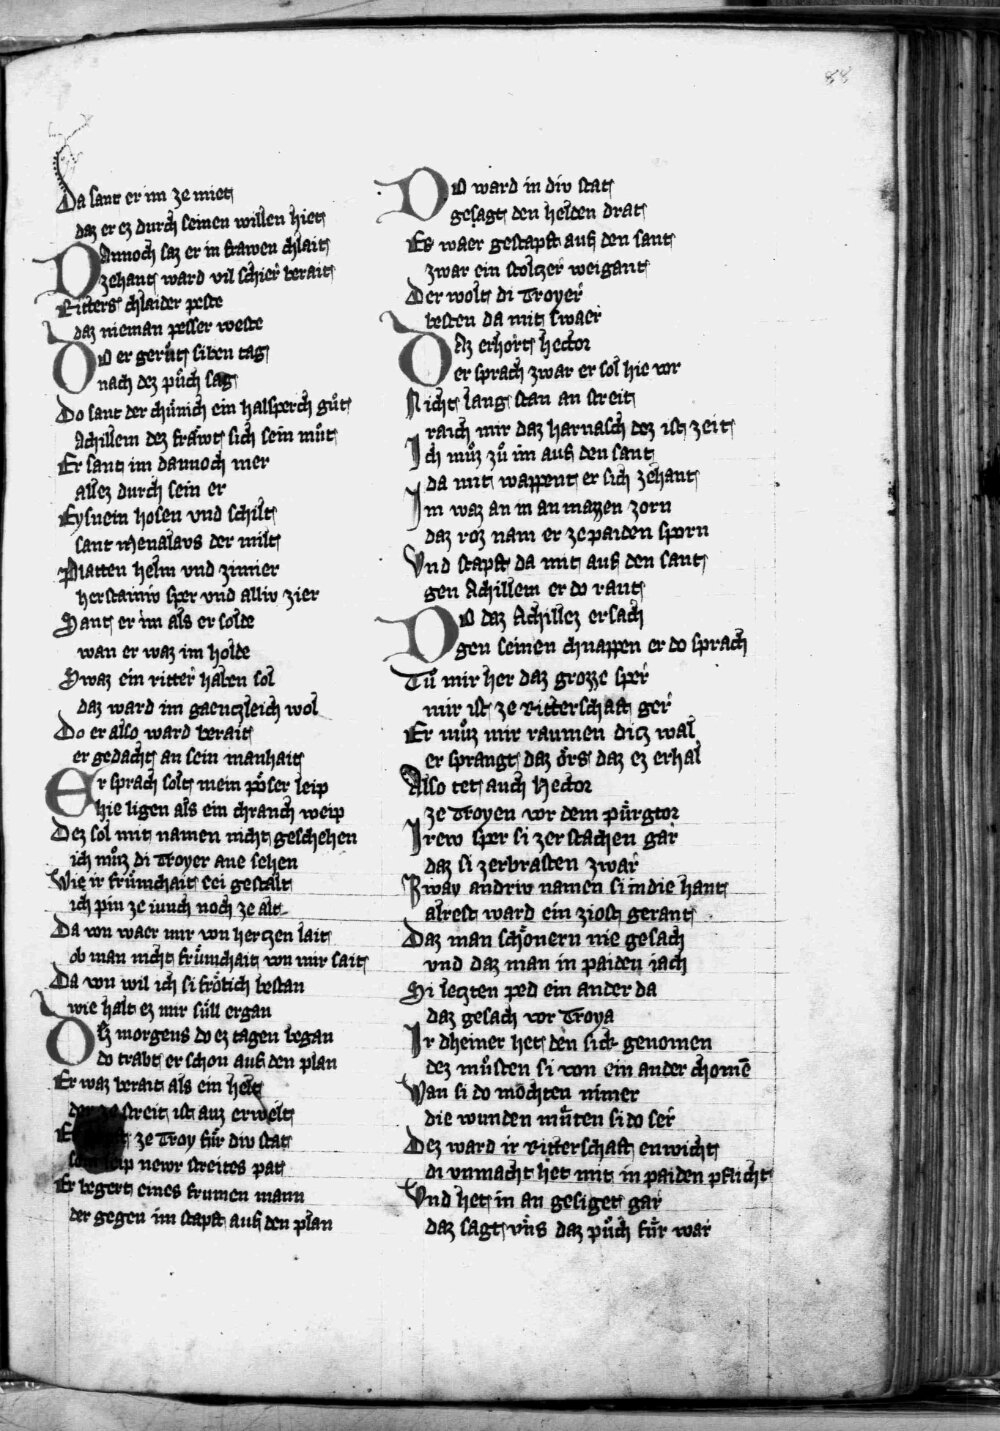 88
Da sant er im ze miet
daz er ez durch seinen willen hiet
Dannoch saz er in frawen chlait
zehant ward vil schier berait
Ritters chlaider peste
daz nieman pesser weste
Do er gerůt siben tag
nach dez půch sag
Do sant der chůnich ein halsperch gůt
Achillem dez fräwt sich sein můt
Er sant im dannoch mer
allez durch sein er
Eysnein hosen vnd schilt
sant Menalaus der milt
Platten helm vnd zimier
herstainiv sper vnd alliv zier
Sant er im als er solde
wan er waz im holde
Swaz ein ritter haben sol
daz ward im gaentzleich wol
Do er also ward berait
er gedacht an sein manhait
Er sprach solt mein pöser leip
hie ligen als ein chranch weip
Dez sol mit namen nicht geschehen
ich můz di Troyer ane sehen
Wie ir frümchait sei gestalt
ich pin ze iunch noch ze alt
Da von waer mir von hertzen lait
ob man nicht frümchait von mir sait
Da von wil ich si frölich bestan
wie halt ez mir süll ergan
Dez morgens do ez tagen began
do trabt er schon auf den plan
Er waz berait als ein helt
der ze streit ist auz erwelt
ze Troy für div stat
leip newr streites pat
Er begert eines frumen mann
der gegen im stapft auf den plan
Do ward in div stat
gesagt den helden drat
Es waer gestapft auf den sant
zwar ein stoltzer weigant
Der wolt di Troyer
besten da mit swaer
Daz erhort hector
er sprach zwar er sol hie vor
Nicht lang stan an streit
raich mir daz harnasch dez ist zeit
Ich můz zů im auf den sant
da mit wappent er sich zehant
Im waz an in an mazzen zorn
daz roz nam er ze paiden sporn
Vnd stapft da mit auf den sant
gen Achillem er do rant
Do daz Achillez ersach
gen seinen chnappen er do sprach
Tů mir her daz grozze sper
mir ist ze Ritterschaft ger
Er můz mir raumen ditz wal
er sprangt daz örs daz ez erhal
Also tet auch Hector
ze Troyen vor dem pürgtor
Irew sper si zerstachen gar
daz si zerbrasten zwar
Zway andriv namen si in die hant
alrest ward ein ziost gerant
Daz man schönern nie gesach
vnd daz man in paiden iach
Si letzten ped ein ander da
daz gesach vor Troya
Ir dheiner het den sick genomen
dez můsten si von ein ander chomē
Wan si do mochten nimer
die wunden můten si do ser
Dez ward ir Ritterschaft enwicht
di vnmacht het mit in paiden pflicht
Vnd het in an gesiget gar
daz sagt vns daz půch für war